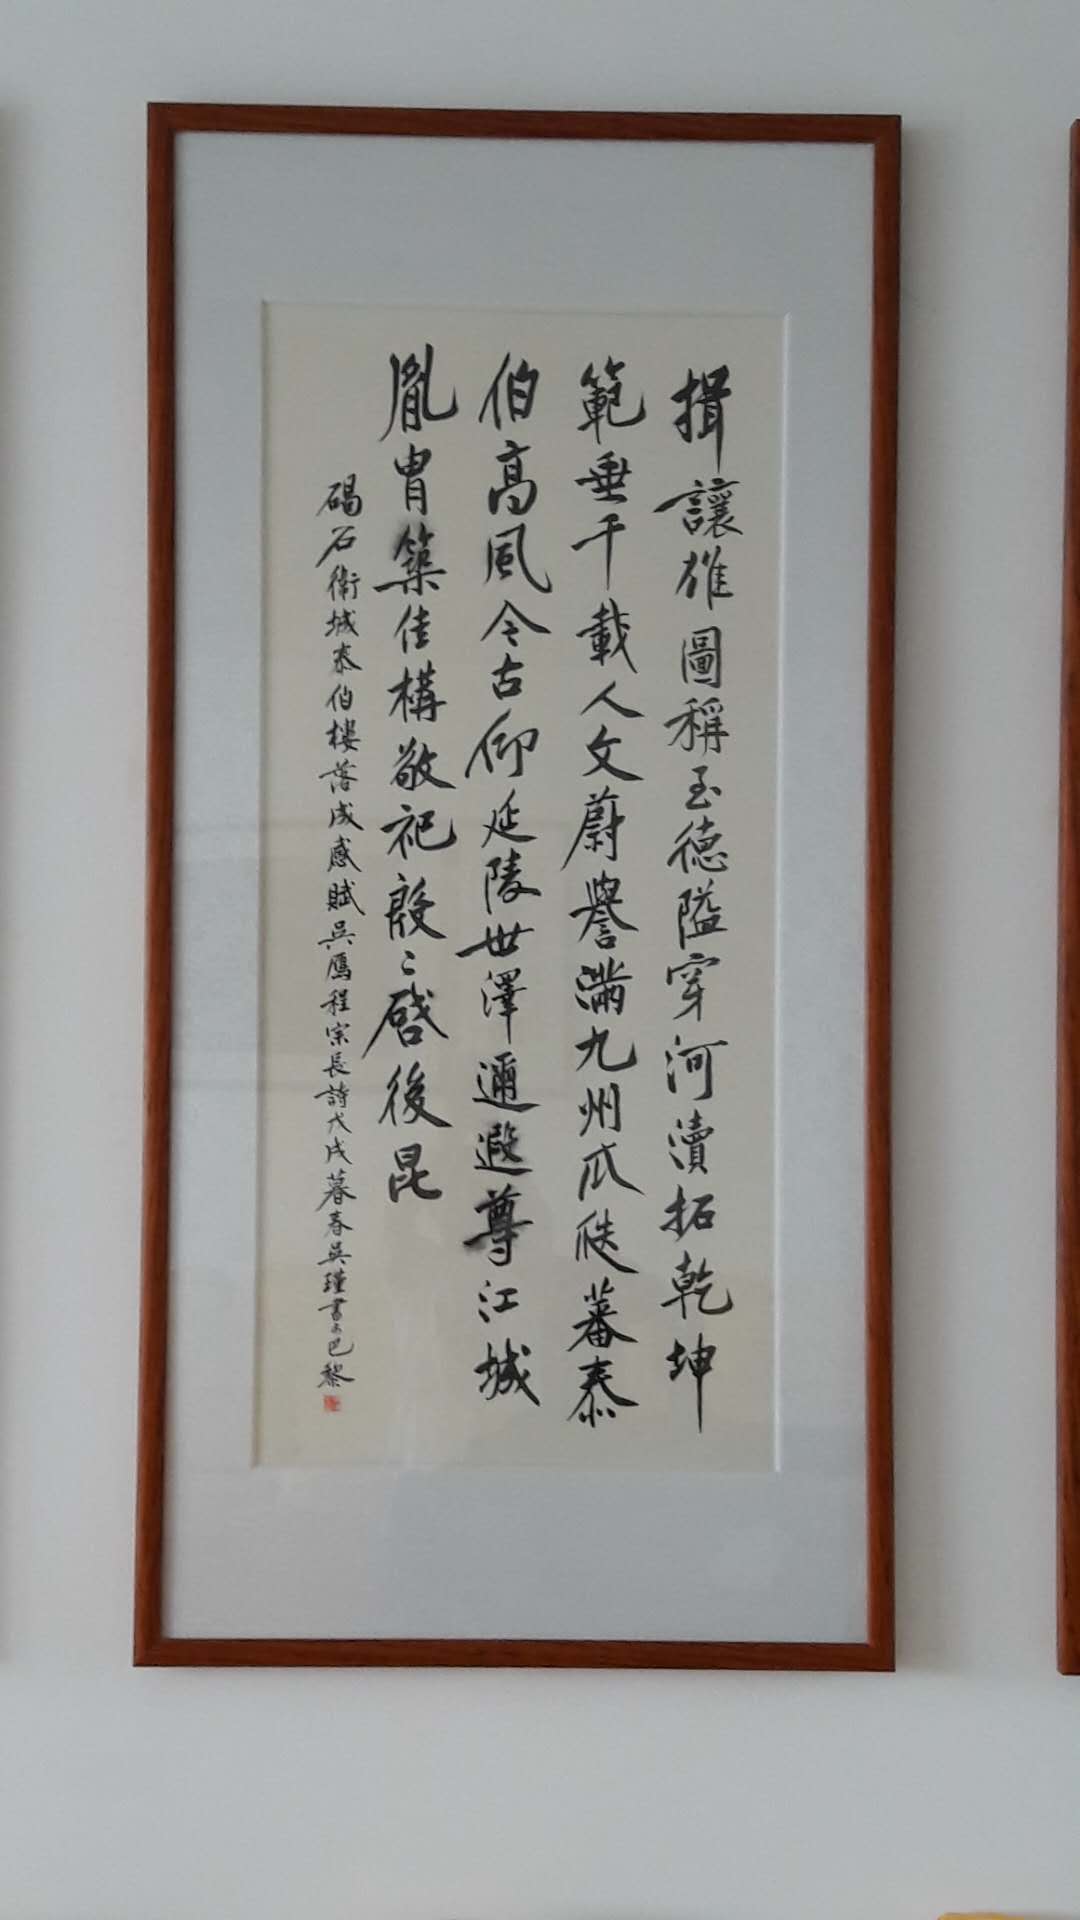 揖讓雄圖稱至德隘穿河瀆拓乾坤
範垂千載人文蔚譽滿九州瓜瓞蕃泰
伯高風今古仰延陵世澤邇遐尊江城
胤胄築佳構敬祀殷〻啓後昆
碣石衛城泰伯樓落成感賦吳鴈程宗長詩戊戌暮春吳瑾書於巴黎